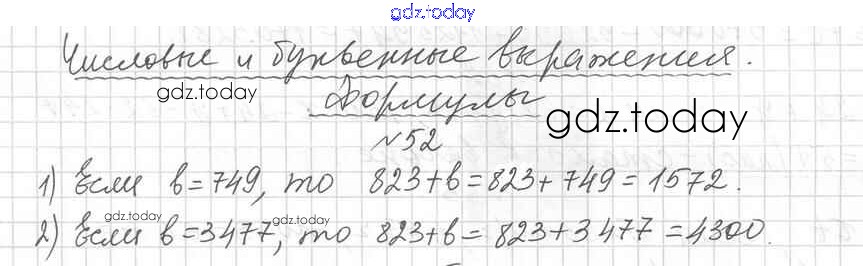 gdz.today
Числовые и буквенные выражения.
gdz.today
Формулы
gdz.today
№52
1) Если b=749, то 823+b=823+749=1572.
gdz.today gdz.today
2) Если b=3477, то 823+b=823+3477=4300.